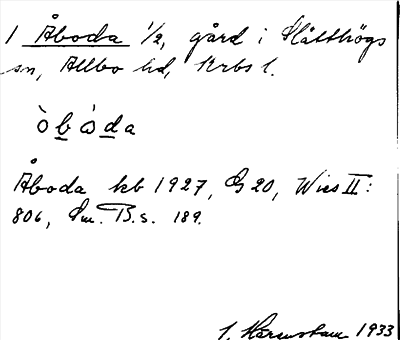 1 Åboda 1/2, gård i Slätthögs
sn, Allbo hd, Krbs l.
òbòda
Åboda kb 1927, G 20, Wies II:
806, Sm. B. s. 189.
1933